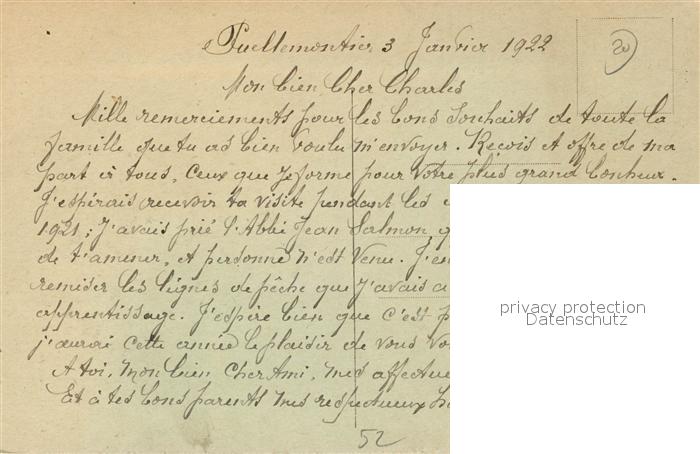 Puellemontier 3 Janvier 1922
20
Mon bien Cher Charles
Mille remerciements pour les bons souhaits de toute la
famille que tu as bien voulu m'envoyer. Reçois et offre de ma
part à tous, ceux que je forme pour votre plus grand bonheur.
J'espérais recevoir ta visite pendant les
1921; J'avais prié l'Abbé Jean Salmon
de t'amener, et personne n'est venu.
remiser les lignes de pêche que j'avais
apprentissage. J'espère bien que c'est
j'aurai cette année le plaisir de vous
A toi, mon bien cher Ami, mes
Et à tes bons parents mes respectueux
52
privacy protection
Datenschutz